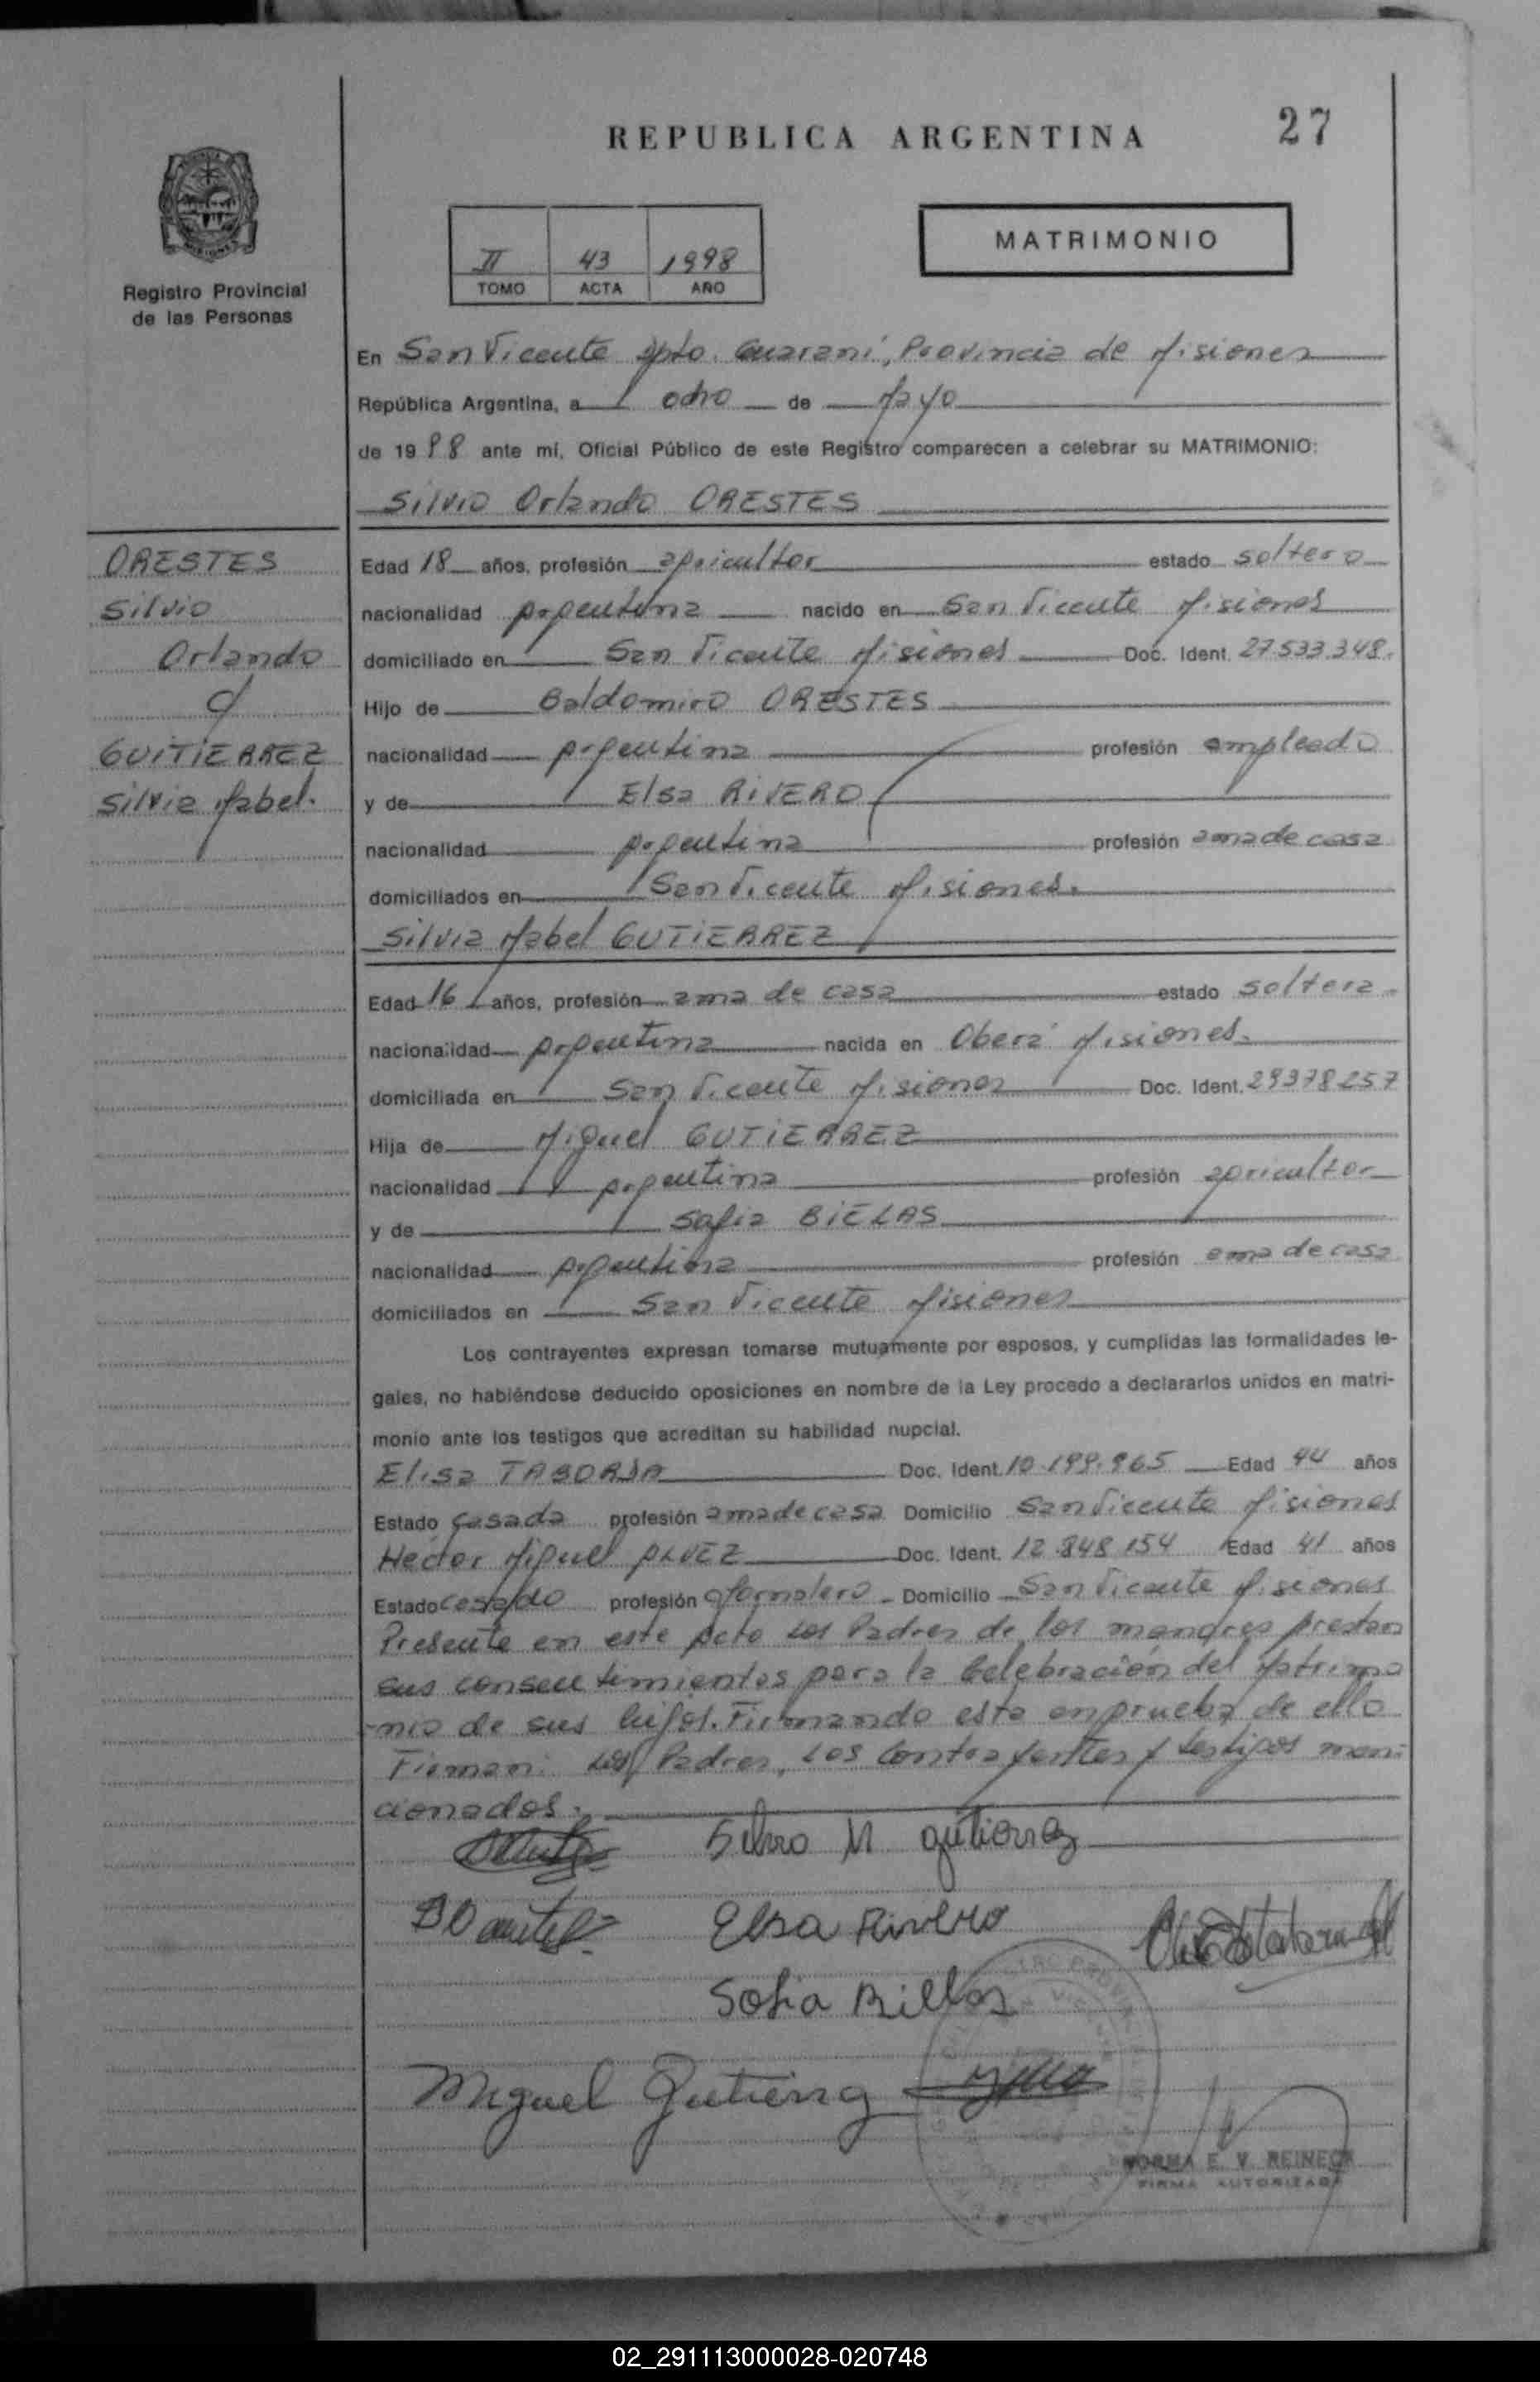 27
REPUBLICA ARGENTINA
MATRIMONIO
II 43 1998
TOMO ACTA AÑO
Registro Provincial
de las Personas
En San Vicente Dpto. Guaraní, Provincia de Misiones
República Argentina, a ocho de Mayo
de 1998 ante mí, Oficial Público de este Registro comparecen a celebrar su MATRIMONIO:
Silvio Orlando ORESTES
ORESTES
Silvio
Orlando
c/
GUITIERREZ
Silvia Mabel.
Edad 18 años, profesión agricultor estado soltero
nacionalidad Argentina nacido en San Vicente Misiones
domiciliado en San Vicente Misiones Doc. Ident. 27.533.348.
Hijo de Baldomiro ORESTES
nacionalidad Argentina profesión empleado
y de Elsa RIVERO
nacionalidad Argentina profesión ama de casa
domiciliados en San Vicente Misiones.
Silvia Mabel GUTIERREZ
Edad 16 años, profesión ama de casa estado soltera
nacionalidad Argentina nacida en Oberá Misiones.
domiciliada en San Vicente Misiones Doc. Ident. 29378257
Hija de Miguel GUTIERREZ
nacionalidad Argentina profesión agricultor
y de Safia BIELAS
nacionalidad Argentina profesión ama de casa
domiciliados en San Vicente Misiones
Los contrayentes expresan tomarse mutuamente por esposos, y cumplidas las formalidades le-
gales, no habiéndose deducido oposiciones en nombre de la Ley procedo a declararlos unidos en matri-
monio ante los testigos que acreditan su habilidad nupcial.
Elisa TABORDA Doc. Ident. 10.199.965 Edad 44 años
Estado Casada profesión ama de casa Domicilio San Vicente Misiones
Hector Miguel ALVEZ Doc. Ident. 12.848.154 Edad 41 años
Estado Casado profesión Jornalero Domicilio San Vicente Misiones
Presente en este Acto los Padres de los menores prestan
sus consentimientos para la Celebración del Matrimo
-nio de sus hijos. Firmando esta en prueba de ello
Firman: los Padres, los Contrayentes y testigos men:
cionados.
Silvia M gutierrez
Elsa Rivero
Sofia Billas
Miguel Gutierrez
NORMA E. V. REINECK
FIRMA AUTORIZADA
02_291113000028-020748